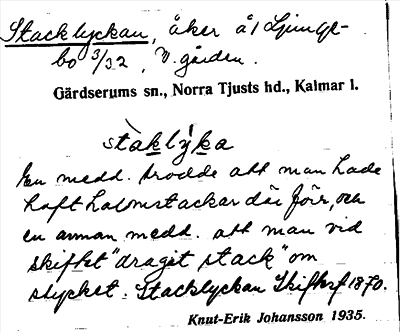 Stacklyckan, åker å l Ljunge-
bo 3/32, V. gården.
Gärdserums sn., Norra Tjusts hd., Kalmar l.
stàklýka
En medd. trodde att man hade
haft halmstackar där förr, och
en annan medd. att man vid
skiftet "dragit stack" om
stycket. Stacklyckan Skifteskf 1870.
Knut-Erik Johansson 1935.